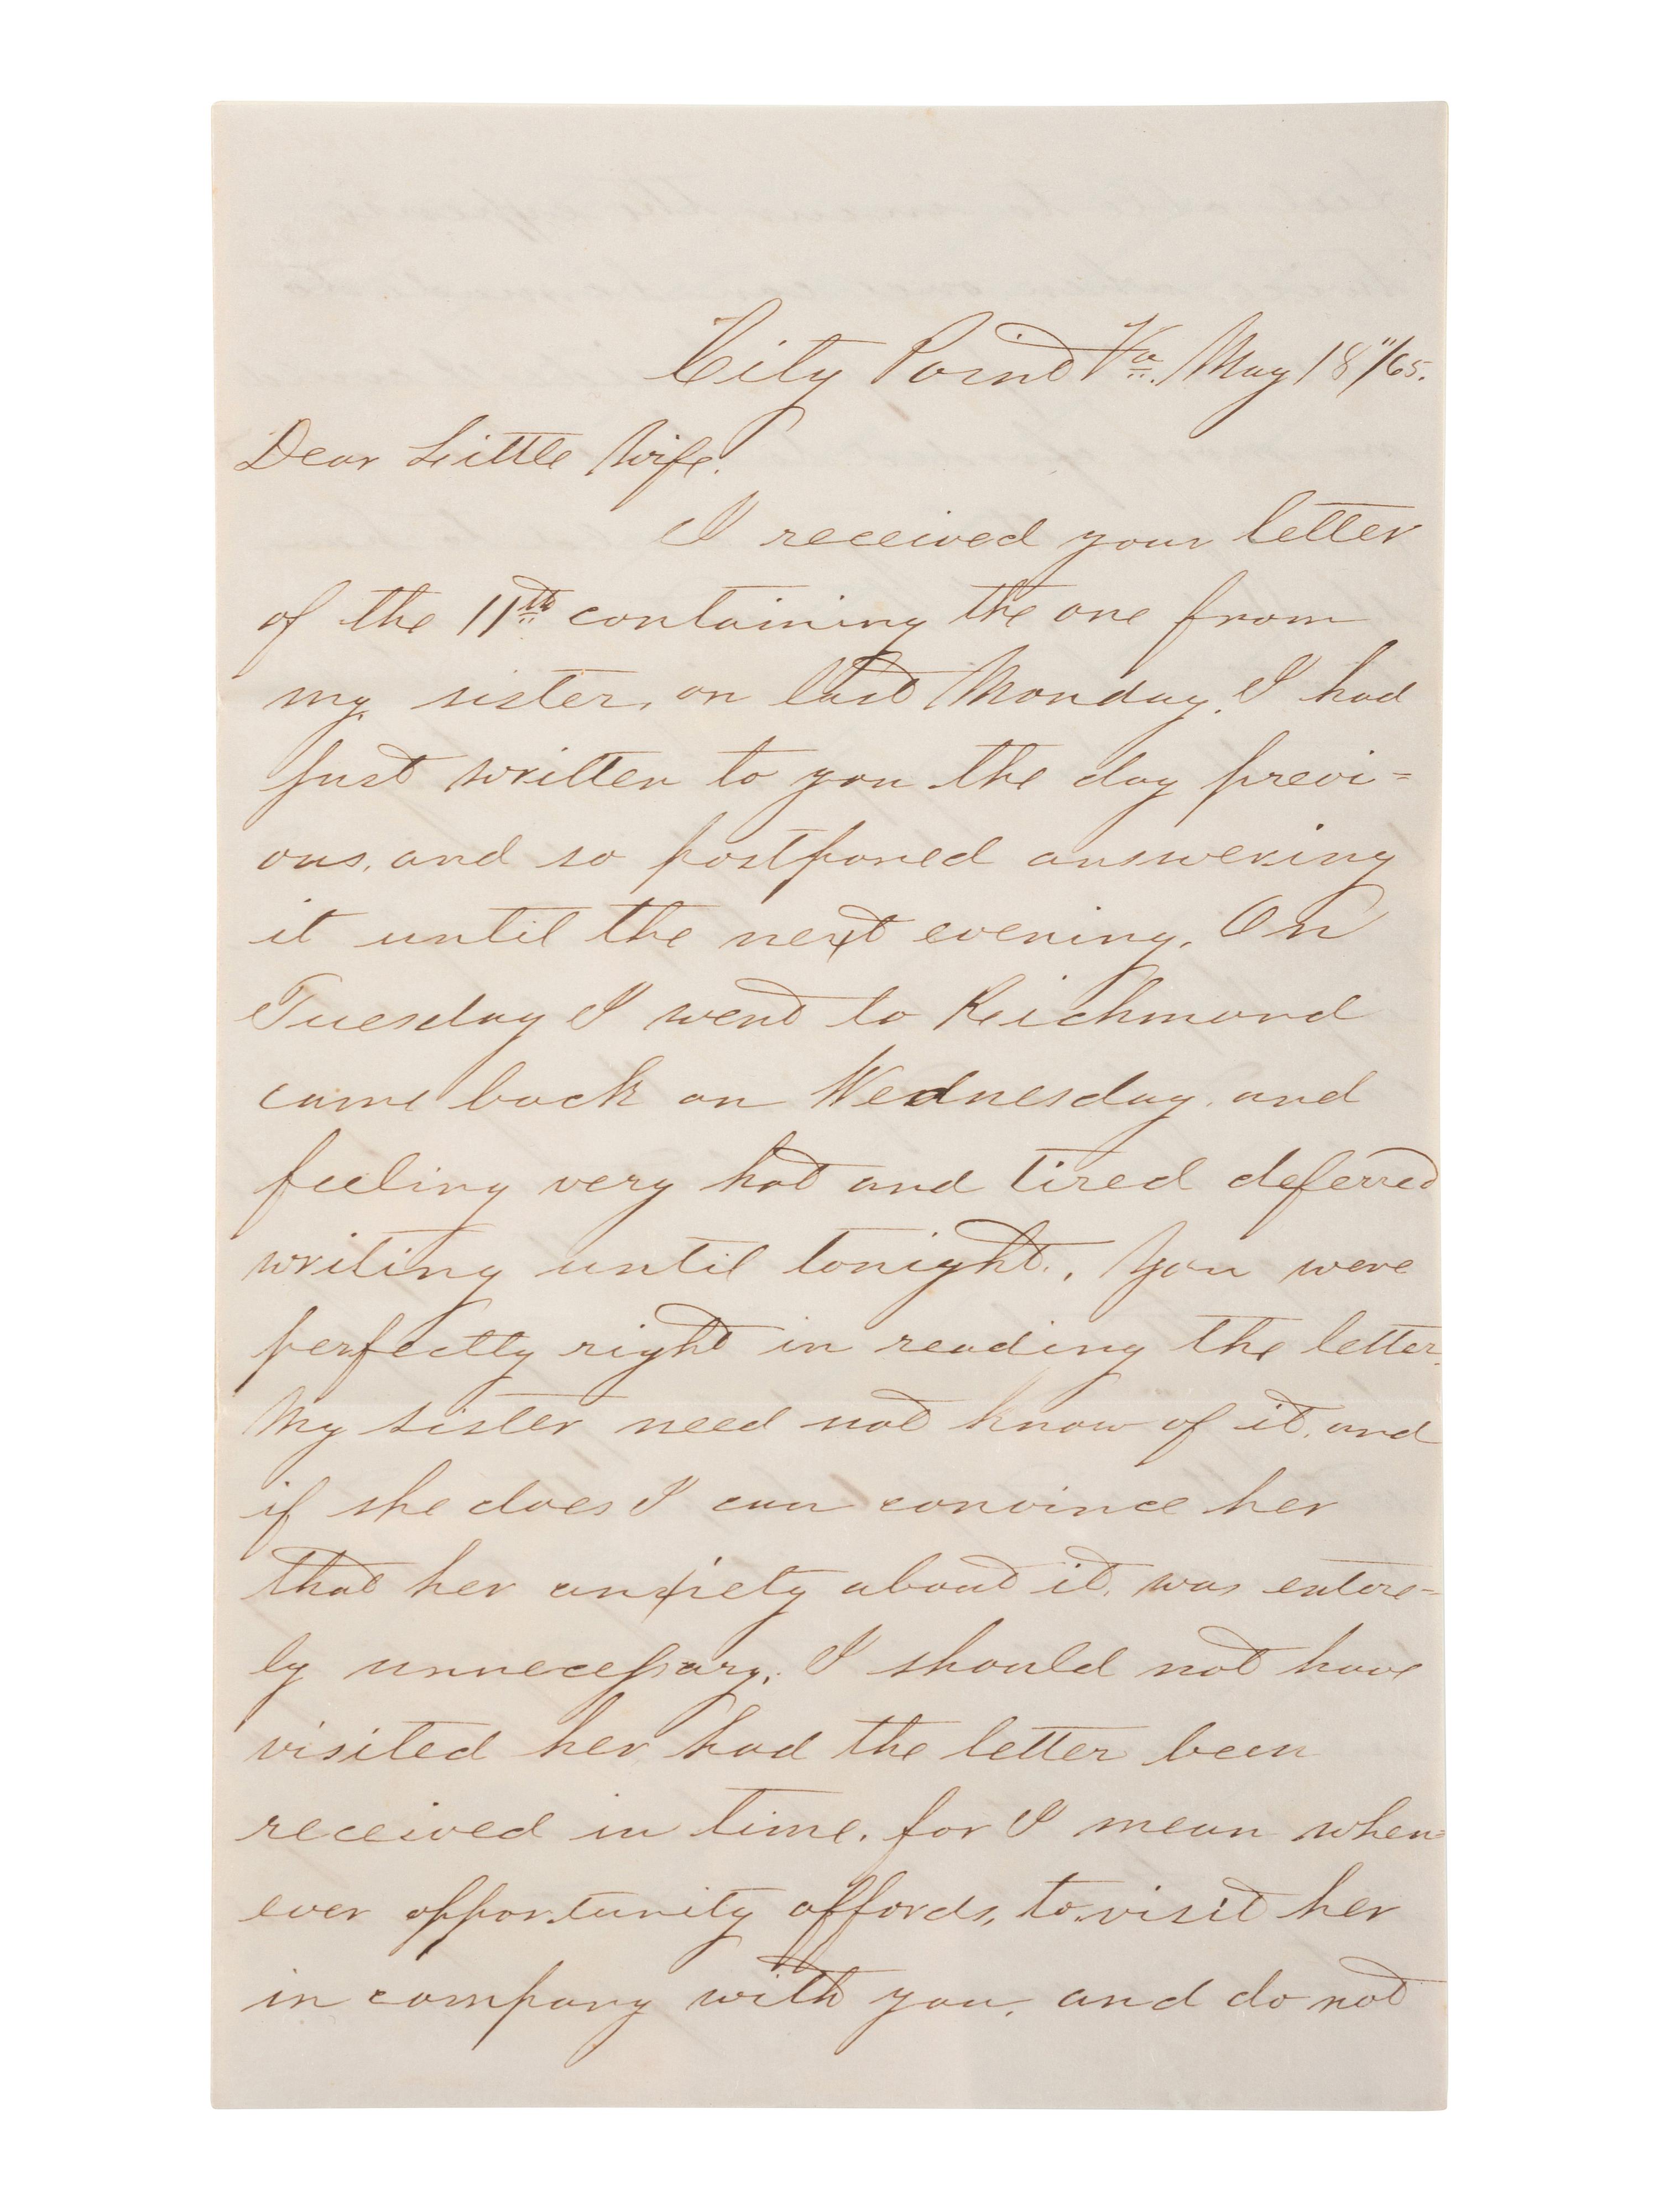 City Point Va. May 18"/65.
Dear Little Wife.
I received your letter
of the 11th containing the one from
my sister, on last Monday. I had
just written to you the day previ=
ous, and so postponed answering
it until the next evening. On
Tuesday I went to Reichmond
came back on Wednesday, and
feeling very hot and tired deferred
writing until tonight. You were
perfectly right in reading the letter.
My sister need not know of it, and
if she does I can convince her
that her anxiety about it, was entire=
ly unnecessary. I should not have
visited her had the letter been
received in time. for I mean when=
ever opportunity affords, to visit her
in company with you, and do not